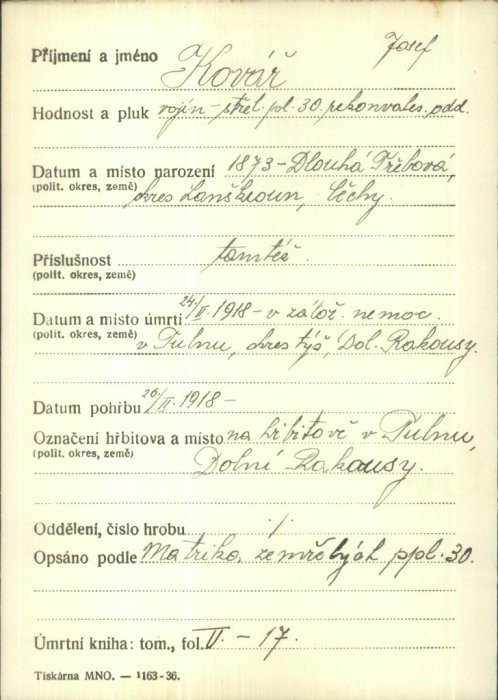 Josef
Příjmení a jméno Kovář
Hodnost a pluk vojín - střel. pl. 30. rekonvales. odd.
Datum a místo narození 1873 - Dlouhá Třebová,
(polit. okres, země) okres Lanškroun, Čechy.
Příslušnost tamtéž
(polit. okres, země)
Datum a místo úmrtí 24/II. 1918 - v zálož. nemoc.
(polit. okres, země) v Tulnu, okres týž, Dol. Rakousy.
Datum pohřbu 26/II. 1918 -
Označení hřbitova a místo na hřbitově v Tulnu,
(polit. okres, země) Dolní Rakousy.
Oddělení, číslo hrobu /.
Opsáno podle Matrika zemřelých ppl. 30.
Úmrtní kniha: tom., fol. II. - 17.
Tiskárna MNO. — 1163-36.